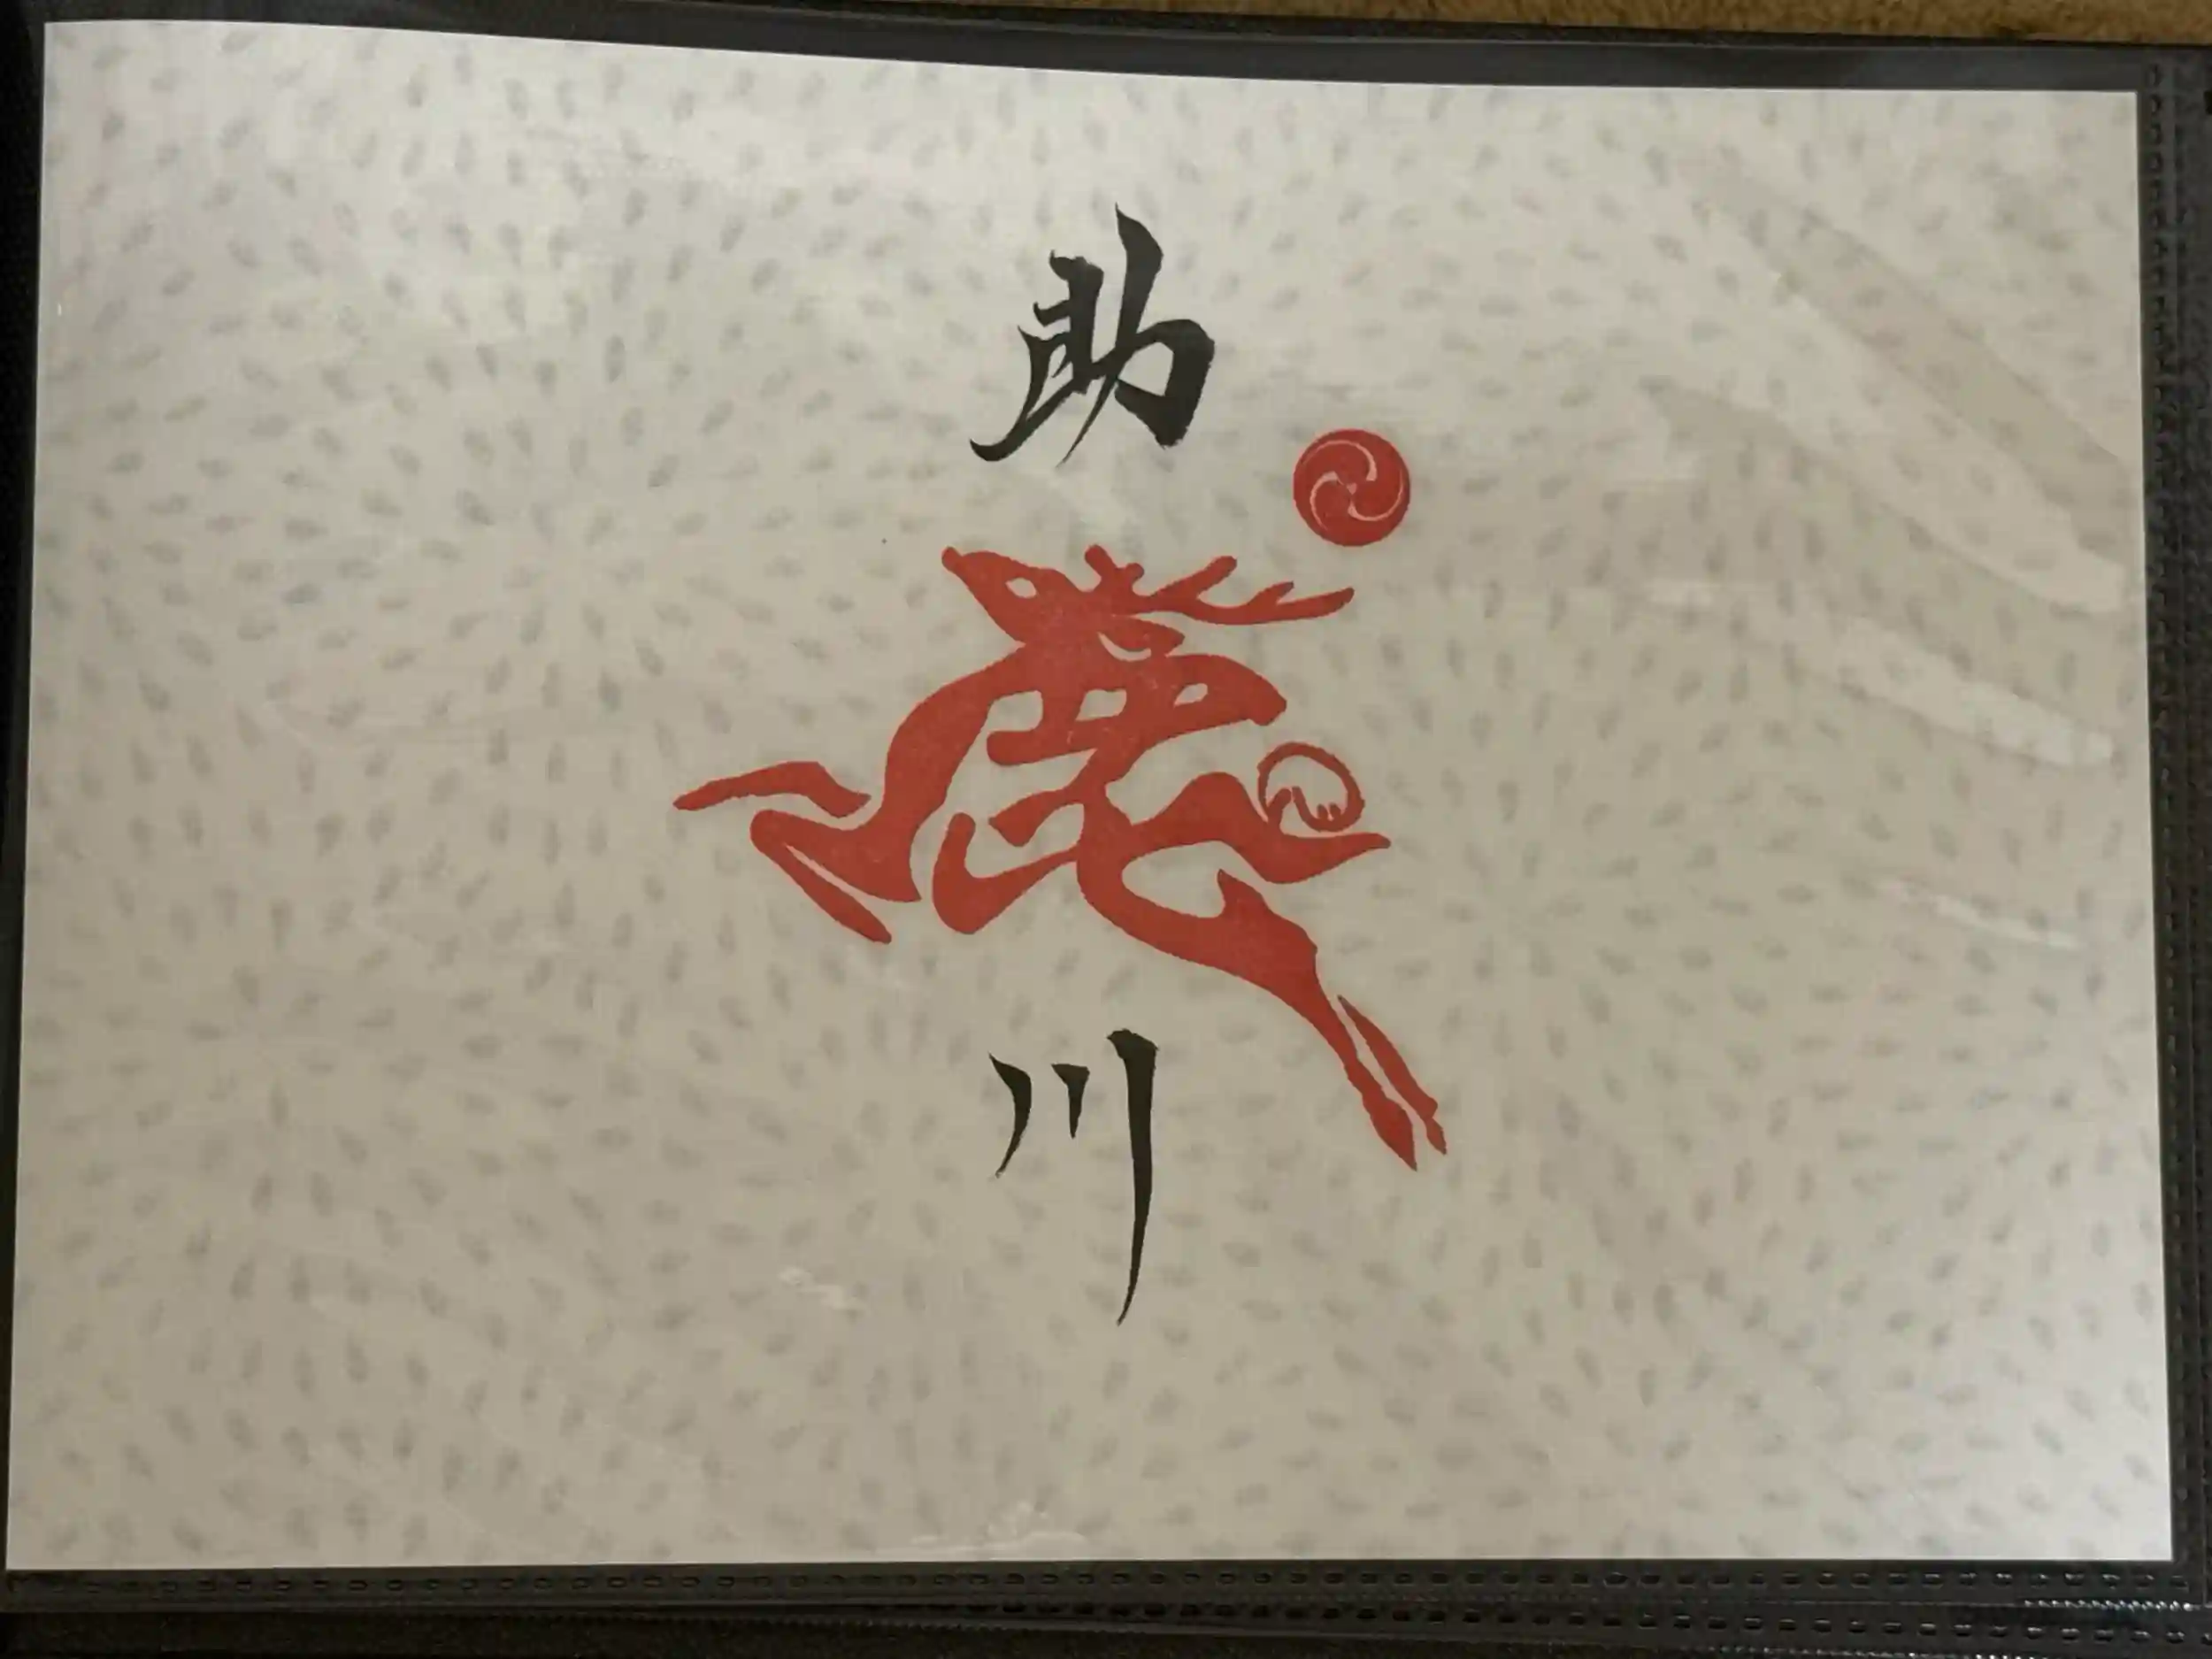 助
鹿
川